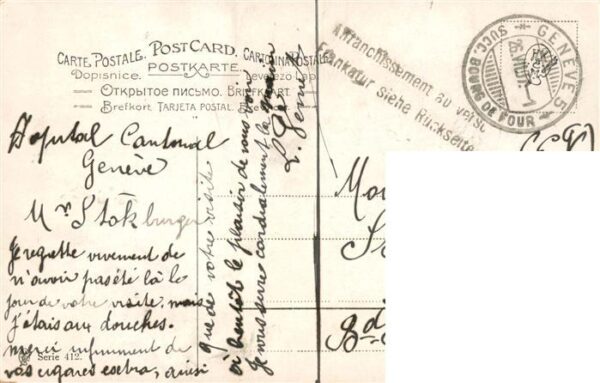 CARTE POSTALE. POST CARD. CARTOLINA POSTALE.
Dopisnice. POSTKARTE. Levelező Lap.
ОТКРЫТОЕ ПИСЬМО. BRIEFKORT.
Brefkort. TARJETA POSTAL.
Affranchissement au verso.
Frankatur siehe Rückseite
GENÈVE 5
SUCC. BOURG DE FOUR
Hopital Cantonal
Genève
Mr Stokburger
Je regrette vivement de
n'avoir pas été là le
jour de votre visite, mais
j'étais aux douches.
merci infiniment de
vos cigares extra, ainsi
que de votre visite
Serie 412.
à bientôt le plaisir de vous voir
Je vous serre cordialement la main
Bd